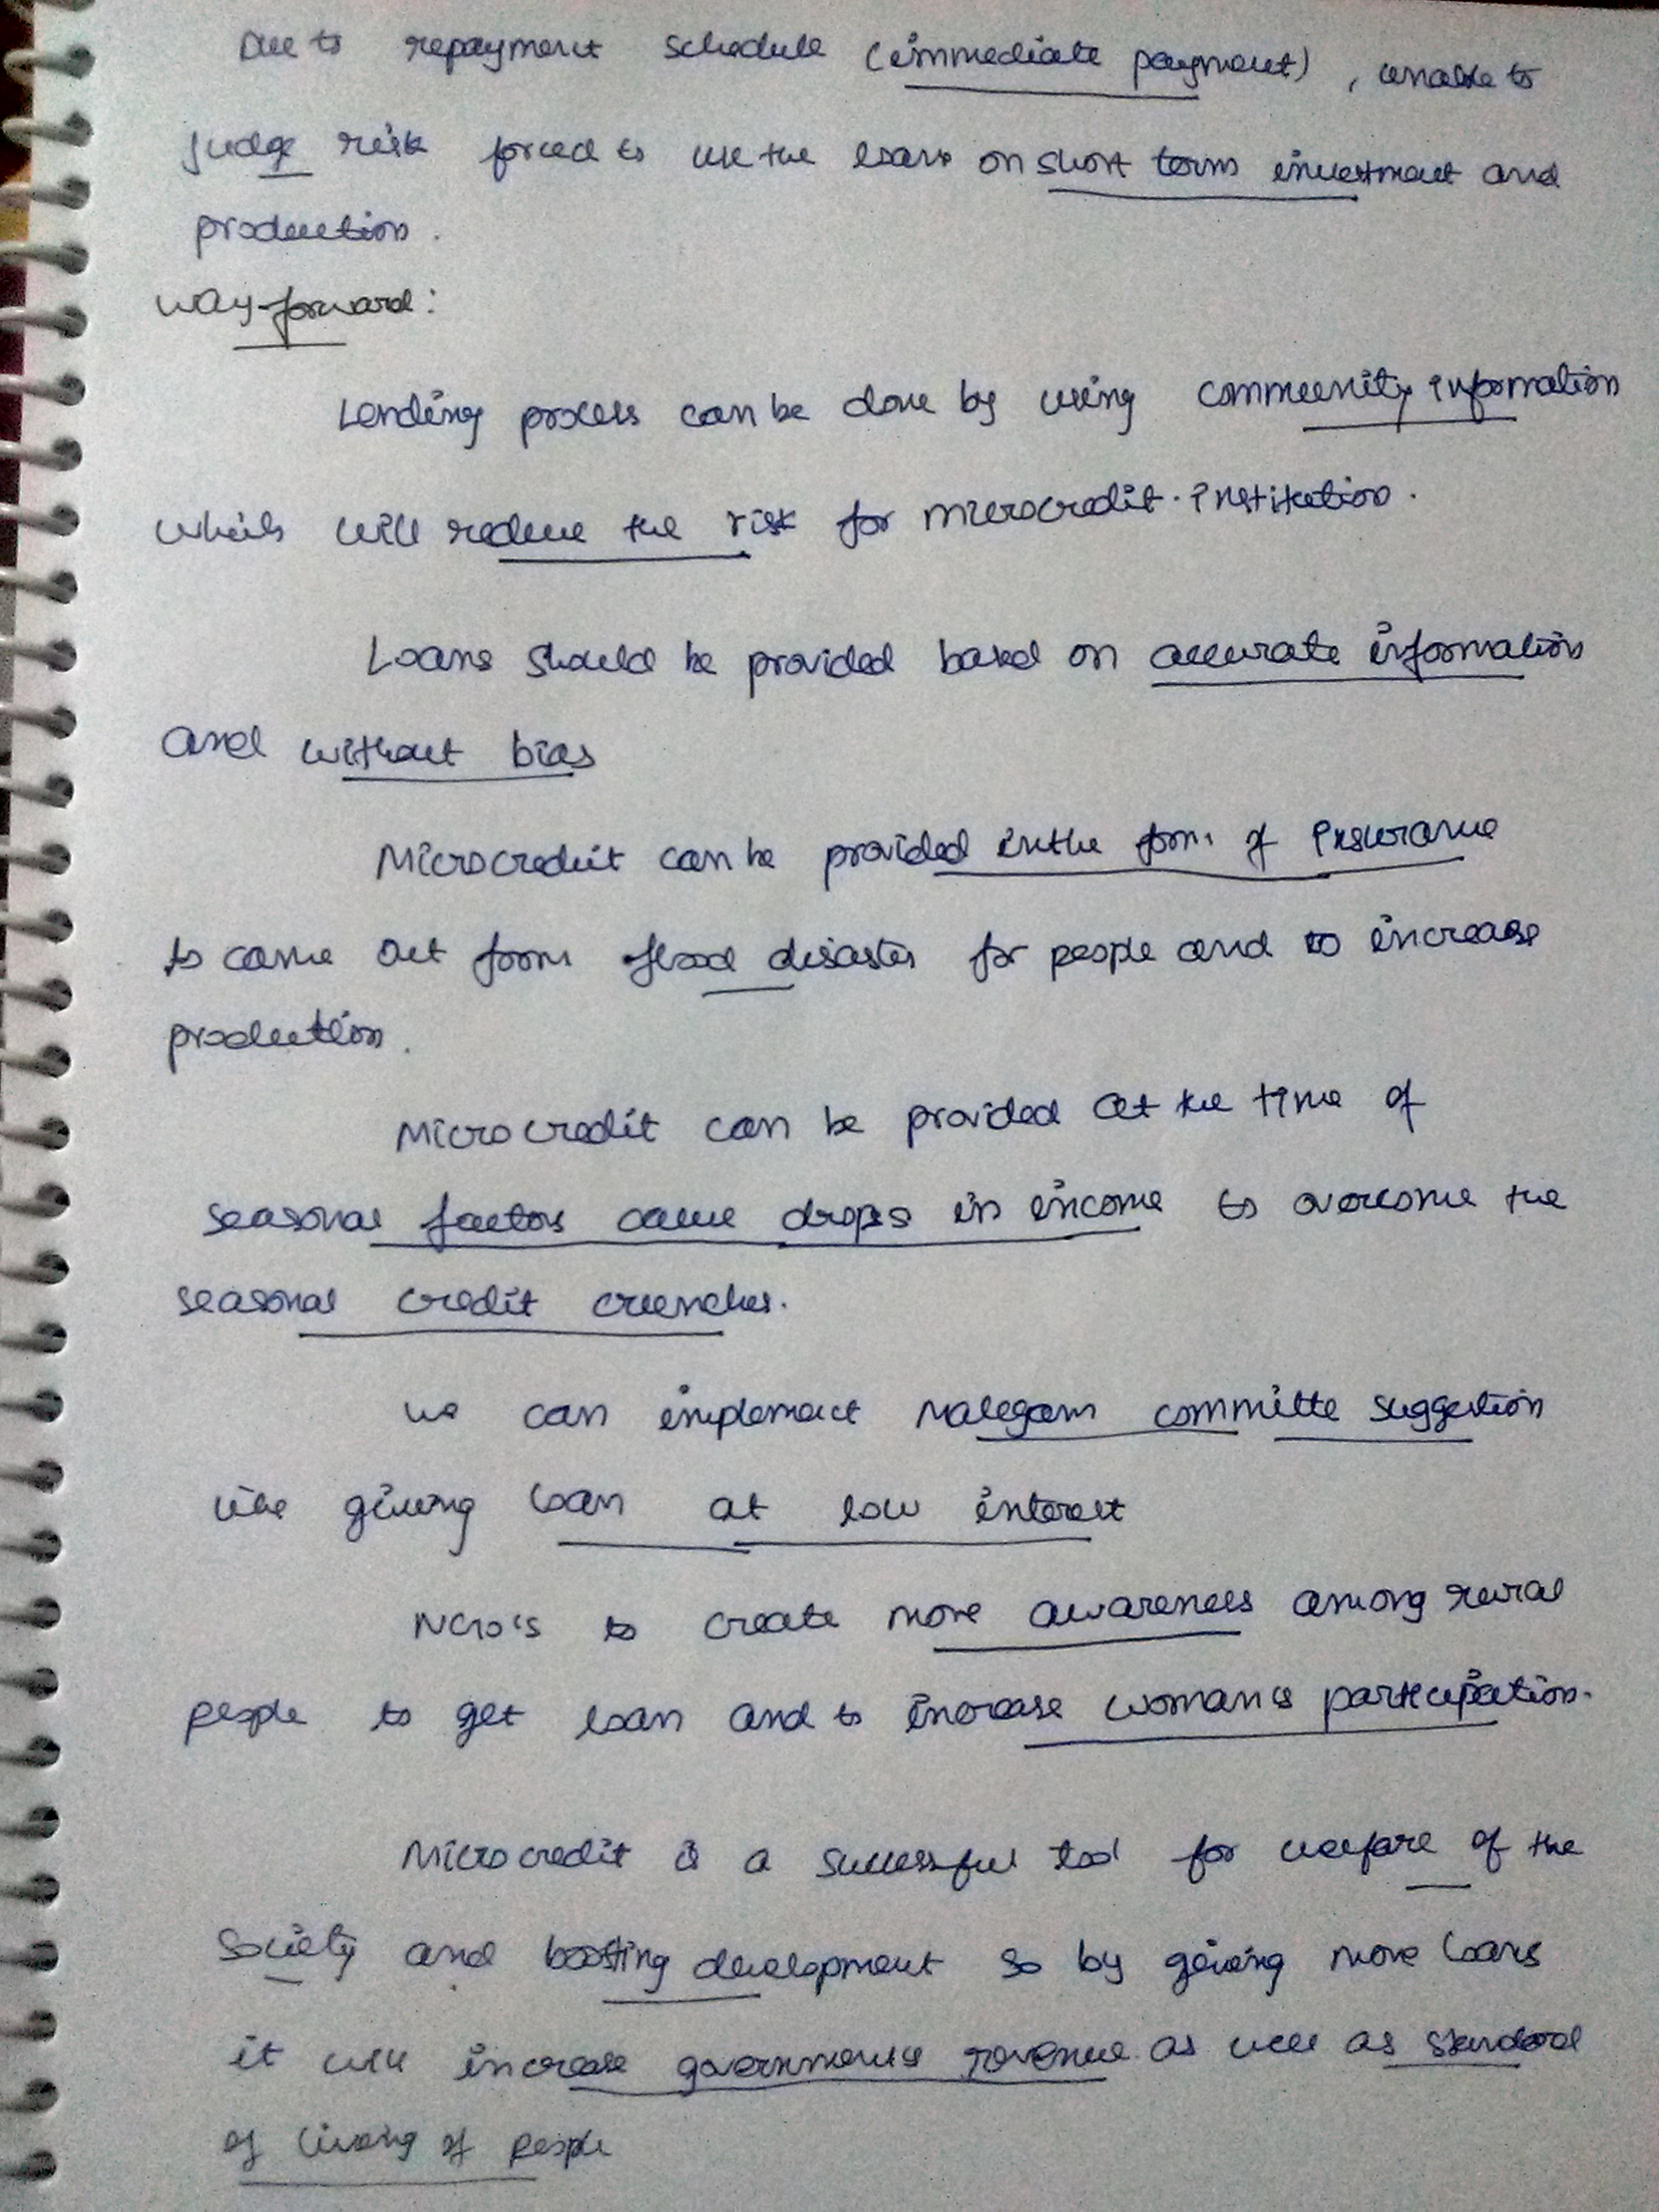 Due to repayment schedule (immediate payment), unable to
judge risk forced to use the loans on short term investment and
production.
way-forward:
Lending process can be done by using community information
which will reduce the risk for microcredit institution.
Loans should be provided based on accurate information
and without bias
Microcredit can be provided in the form of insurance
to come out form flood disaster for people and to increase
production.
Microcredit can be provided at the time of
seasonal factors cause drops in income to overcome the
seasonal credit crunches.
we can implement Malegam committe suggestion
like giving loan at low interest
NGO's to create more awareness among rural
people to get loan and to increase woman's participation.
Microcredit is a successful tool for welfare of the
society and boosting development so by giving more loans
it will increase government's revenue as well as standard
of living of people